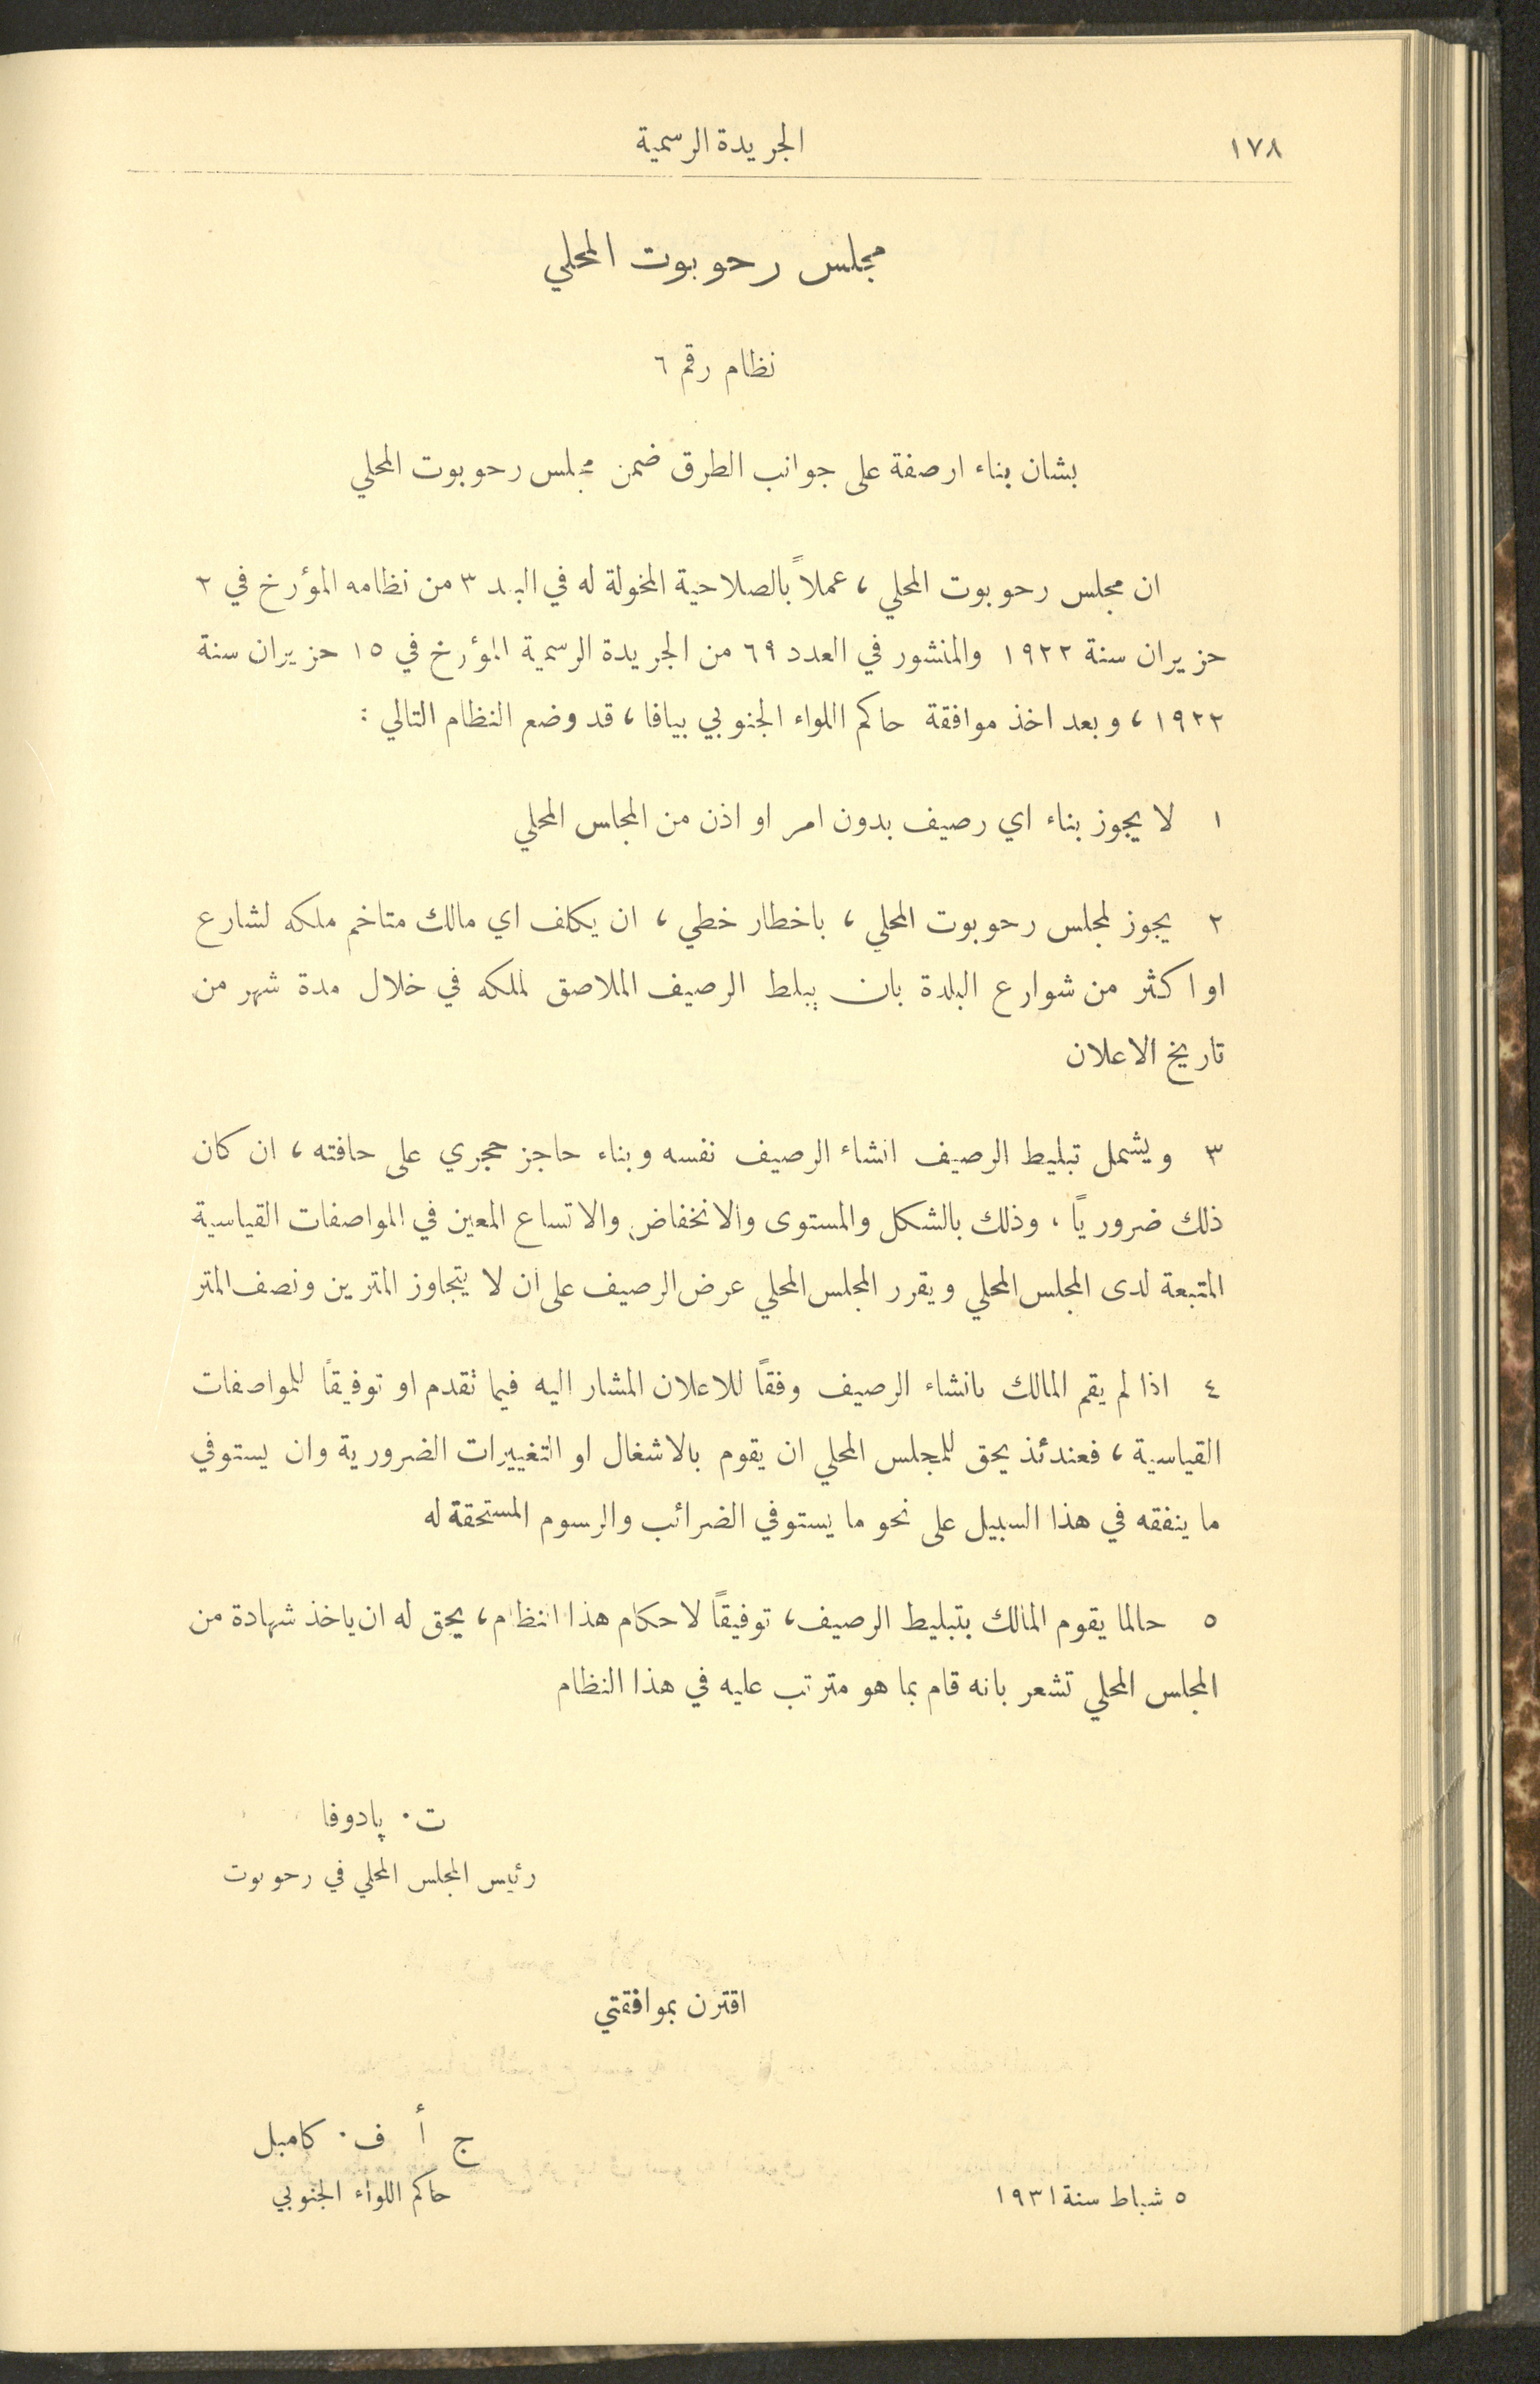 ١٧٨
الجريدة الرسمية
مجلس رحوبوت المحلي
نظام رقم ٦
بشان بناء ارصفة على جوانب الطرق ضمن مجلس رحوبوت المحلي
ان مجلس رحوبوت المحلي ، عملاً بالصلاحية المخولة له في البند ٣ من نظامه المؤرخ في ٢
حزيران سنة ١٩٢٢ والمنشور في العدد ٦٩ من الجريدة الرسمية المؤرخ في ١٥ حزيران سنة
١٩٢٢ ، وبعد اخذ موافقة حاكم اللواء الجنوبي بيافا ، قد وضع النظام التالي :
١ لا يجوز بناء اي رصيف بدون امر او اذن من المجلس المحلي
٢ يجوز لمجلس رحوبوت المحلي ، باخطار خطي ، ان يكلف اي مالك متاخم ملكه لشارع
او اكثر من شوارع البلدة بان يبلط الرصيف الملاصق لملكه في خلال مدة شهر من
تاريخ الاعلان
٣ ويشمل تبليط الرصيف انشاء الرصيف نفسه وبناء حاجز حجري على حافته ، ان كان
ذلك ضرورياً ، وذلك بالشكل والمستوى والانخفاض والاتساع المعين في المواصفات القياسية
المتبعة لدى المجلس المحلي ويقرر المجلس المحلي عرض الرصيف على ان لا يتجاوز المترين ونصف المتر
٤ اذا لم يقم المالك بانشاء الرصيف وفقاً للاعلان المشار اليه فيما تقدم او توفيقاً للمواصفات
القياسية ، فعندئذ يحق للمجلس المحلي ان يقوم بالاشغال او التغييرات الضرورية وان يستوفي
ما ينفقه في هذا السبيل على نحو ما يستوفي الضرائب والرسوم المستحقة له
٥ حالما يقوم المالك بتبليط الرصيف ، توفيقاً لاحكام هذا النظام ، يحق له ان ياخذ شهادة من
المجلس المحلي تشعر بانه قام بما هو مترتب عليه في هذا النظام
ت. پادوفا
رئيس المجلس المحلي في رحوبوت
اقترن بموافقتي
ج أ ف. كامبل
حاكم اللواء الجنوبي
٥ شباط سنة ١٩٣١